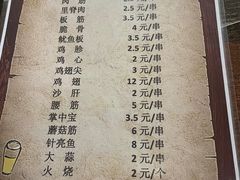 肉 筋 2.5 元/串
里脊肉 2.5 元/串
板 筋 3.5 元/串
脆 骨 4 元/串
鱿鱼板 3.5 元/串
鸡 胗 2.5 元/串
鸡 心 2 元/串
鸡翅尖 3 元/串
鸡 翅 12 元/串
沙 肝 2 元/串
腰 筋 5 元/串
掌中宝 3.5 元/串
蘑菇筋 6 元/串
针亮鱼 8 元/串
大 蒜 2 元/串
火 烧 2 元/个